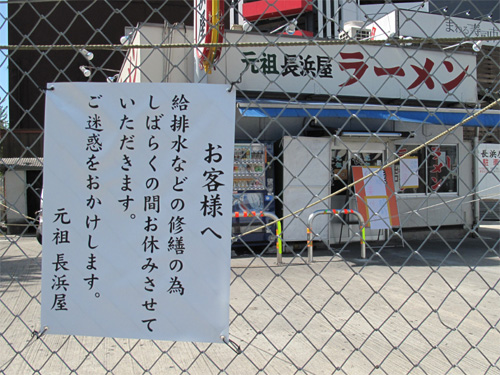 元祖 長浜屋 ラーメン
お客様へ
給排水などの修繕の為
しばらくの間お休みさせて
いただきます。
ご迷惑をおかけします。
元祖 長浜屋